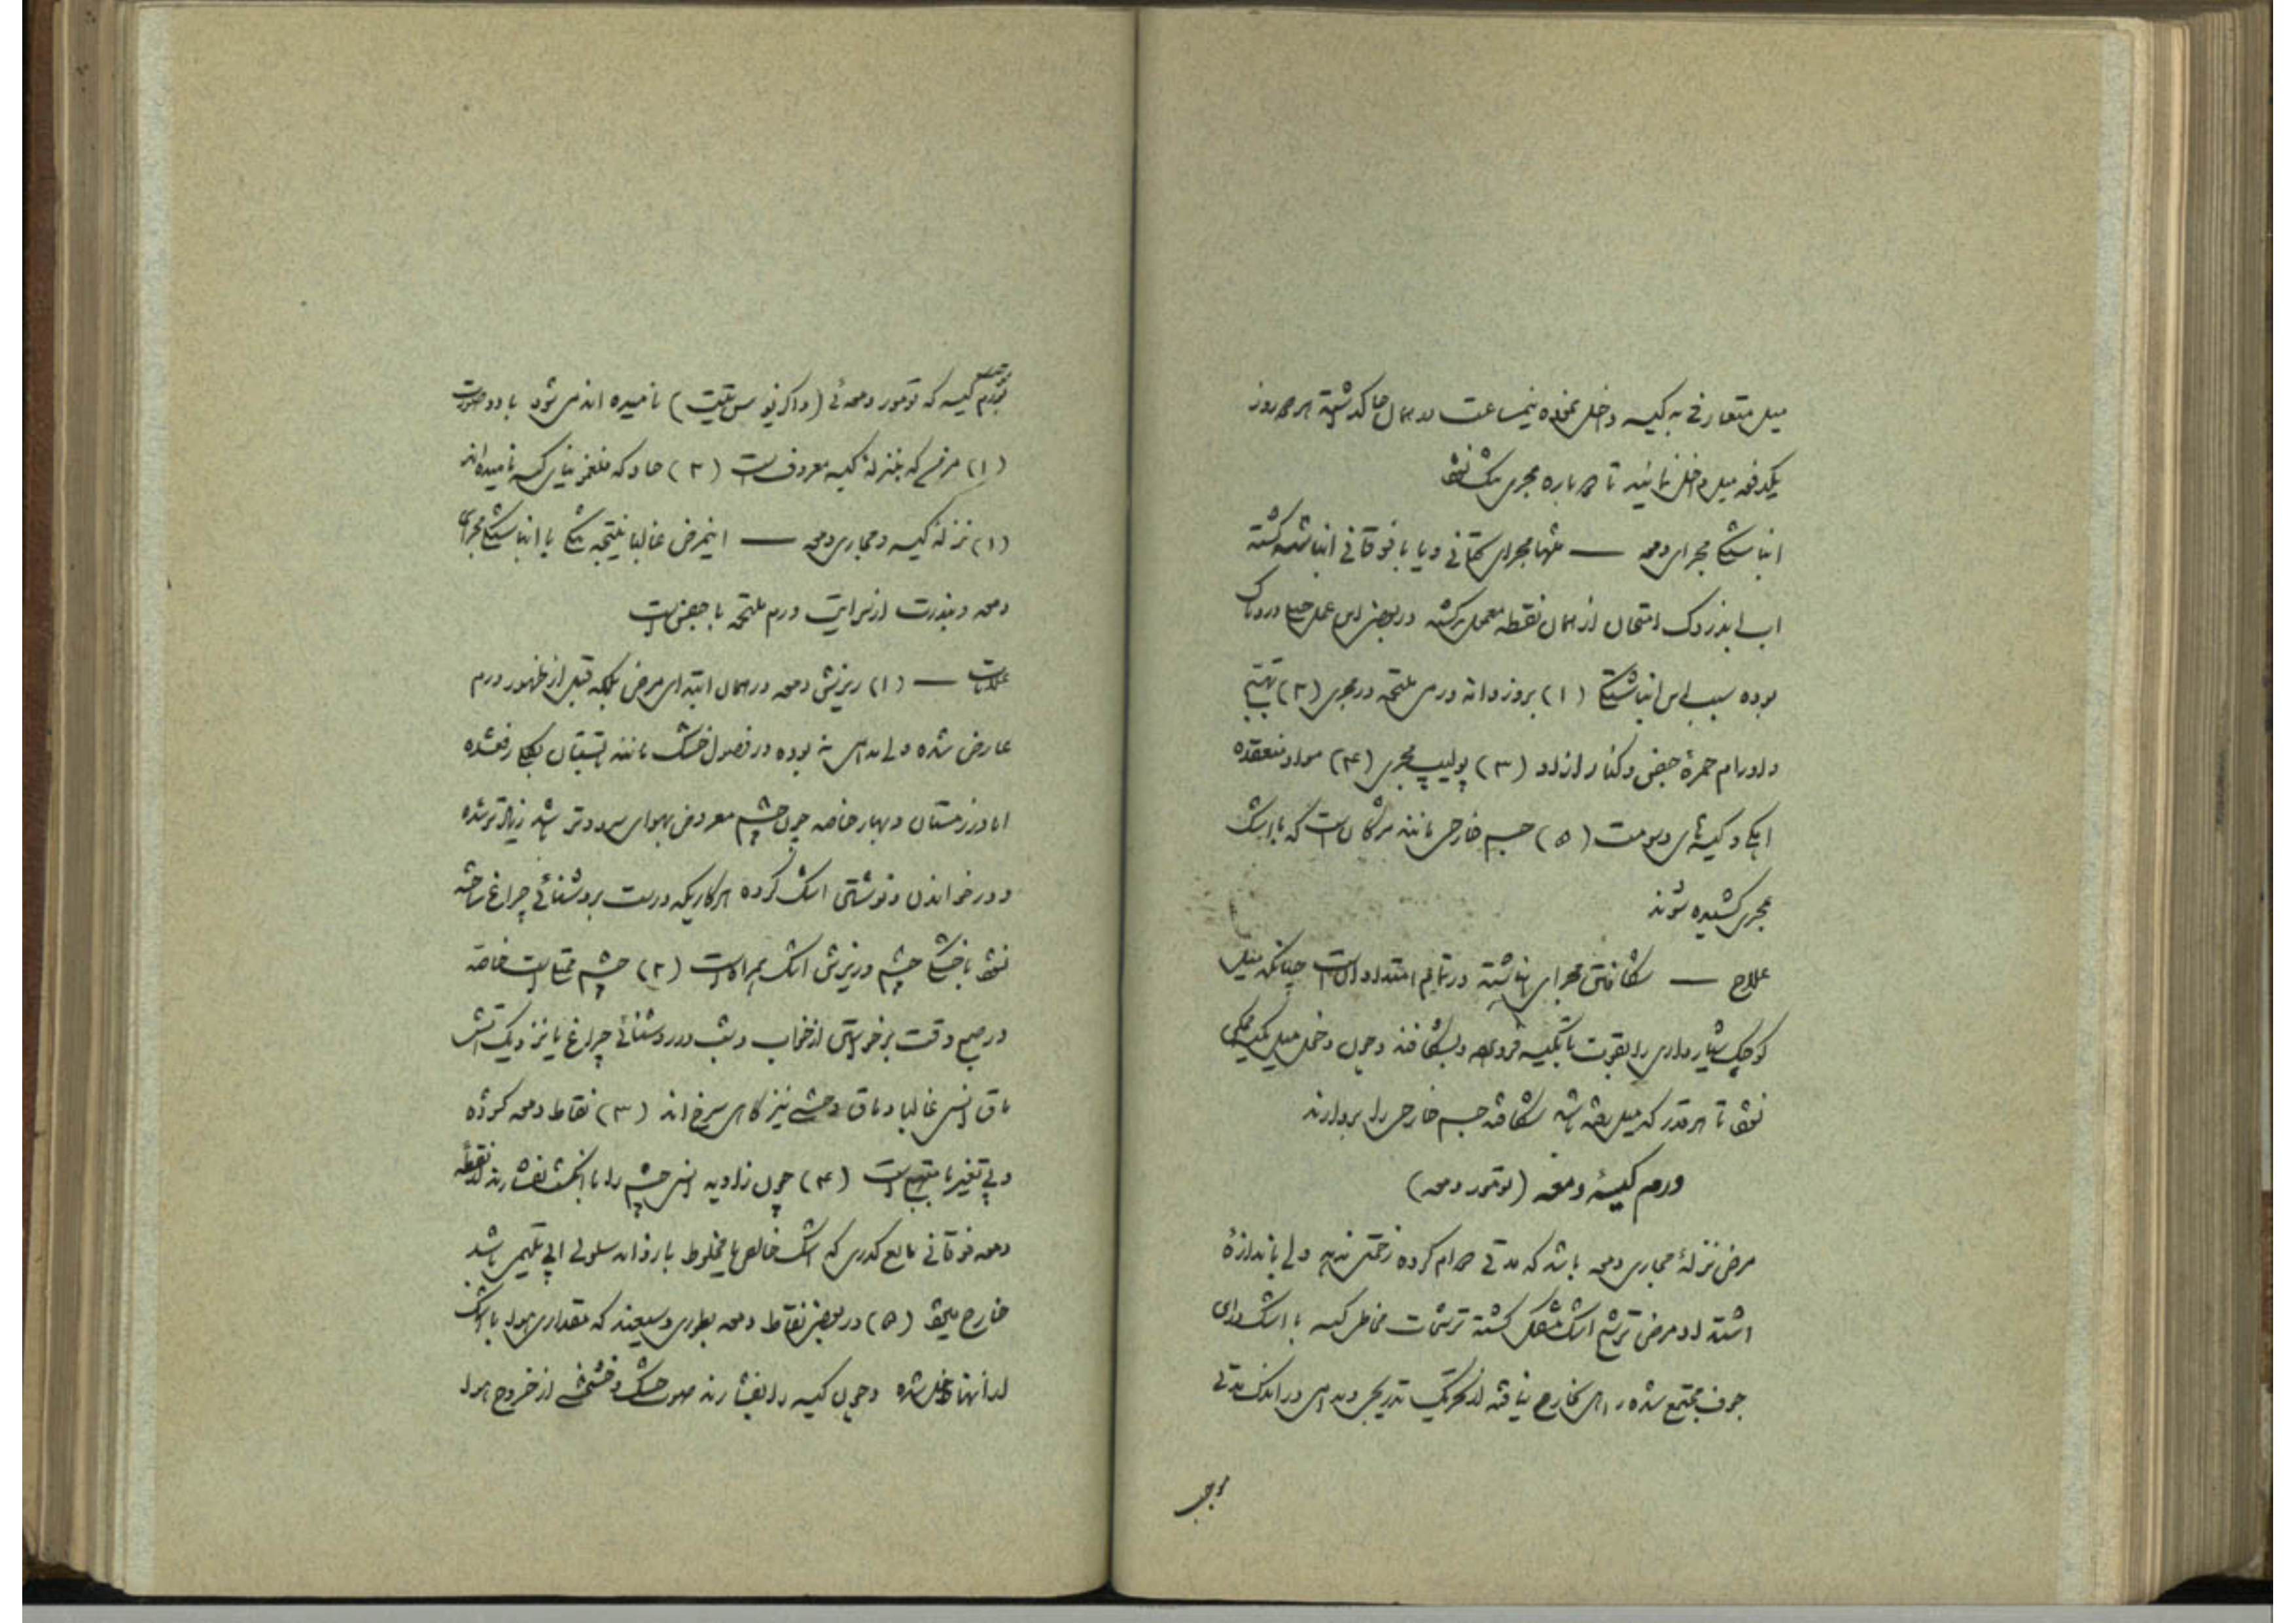 میل متعارفی به کیسه داخل نموده نیمساعت در همان جا گذشته هر سه روز
یکدفعه میل داخل نمائید تا دوباره مجری تنگ نشود
انباشتگی مجرای دمعه — تنها مجرای تحتانی و یا با فوقانی انباشته گشته
آب انزدوک امتحان از همان نقطه معمل برگشته در بعضی این عمل خیلی دردناک
بوده سبب این انباشتگی (۱) بروز دانه در ملتحمه در مجری (۲) تهیج
و اورام حمرهٔ جفن و کنار آزاد او (۳) پولیپ مجری (۴) مواد منعقده
آهکی و کیسه‌های دسومت (۵) جسم خارجی مانند مژگان است که با اشک
بمجری کشیده شوند
علاج — شکافتن مجرای انباشته در تمام امتداد آن است چنانکه میل
کوچک شیار داری را بقوت با تکیه فرو و بشکافند و چون دخل میل ممکن
نشود تا هر قدر که میل رفته باشد شکافته جسم خارجی را بردارند
ورم کیسهٔ دمعه (تومور دمعه)
مرض نزلهٔ مجاری دمعه باشد که مدتی دوام کرده زحمتی ندهد ولی باندازهٔ
اشتداد مرض ترشح اشک مشکل گشته ترشحات مخاطی کیسه با اشک
جوف مجتمع شده راهی بخارج نیافته از تحریک تدریجی و مدامی در اندک مدتی
موجب
موجب تورم کیسه که تومور دمعه‌ئی (داکریوسیس‌تیت) نامیده اند می‌شود با دو صورت
(۱) مزمن که بنزلهٔ کیسه معروف است (۲) حاد که فلغمونیای کیسه نامیده‌اند
(۱) نزلهٔ کیسه و مجاری دمعه — اینمرض غالباً نتیجه تنگی یا انباشتگی مجرای
دمعه و بندرت از سرایت ورم ملتحمه یا جفن است
علامات — (۱) ریزش دمعه در همان ابتدای مرض بلکه قبل از ظهور ورم
عارض شده ولی مدامی نبوده در فصول خشک مانند تابستان بکلی رفع شده
اما در زمستان و بهار خاصه چون چشم معروض بهوای سرد و تر باشد زیادتر شده
و در خواندن و نوشتن اشک کرده هر کاریکه درست بروشنائی چراغ ساخته
نشود با خستگی چشم و ریزش اشک همراه است (۲) چشم ممتلی است خاصه
در صبح وقت برخواستن از خواب و شب در روشنائی چراغ یا نزدیک آتش
ماق انسی غالباً و ماق وحشی نیز گاهی سرخ‌اند (۳) نقاط دمعه گشوده
و بی‌تغیر یا متهیج است (۴) چون زاویه انسی چشم را با انگشت بفشارند از نقطه
دمعه فوقانی مایع کدری که اشک خالص یا مخلوط با رذانه سلولی اپی‌تلیمی باشد
خارج میشود (۵) در بعضی نقاط دمعه بطوری وسیعند که مقداری هوا با اشک
از آنها داخل شده و چون کیسه را بفشارند صوت خشک و خشخشی از خروج هوا